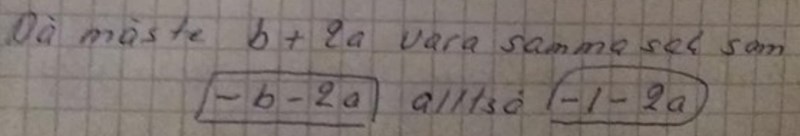 Då måste b + 2a vara samma sak som
-b - 2a alltså -1 - 2a